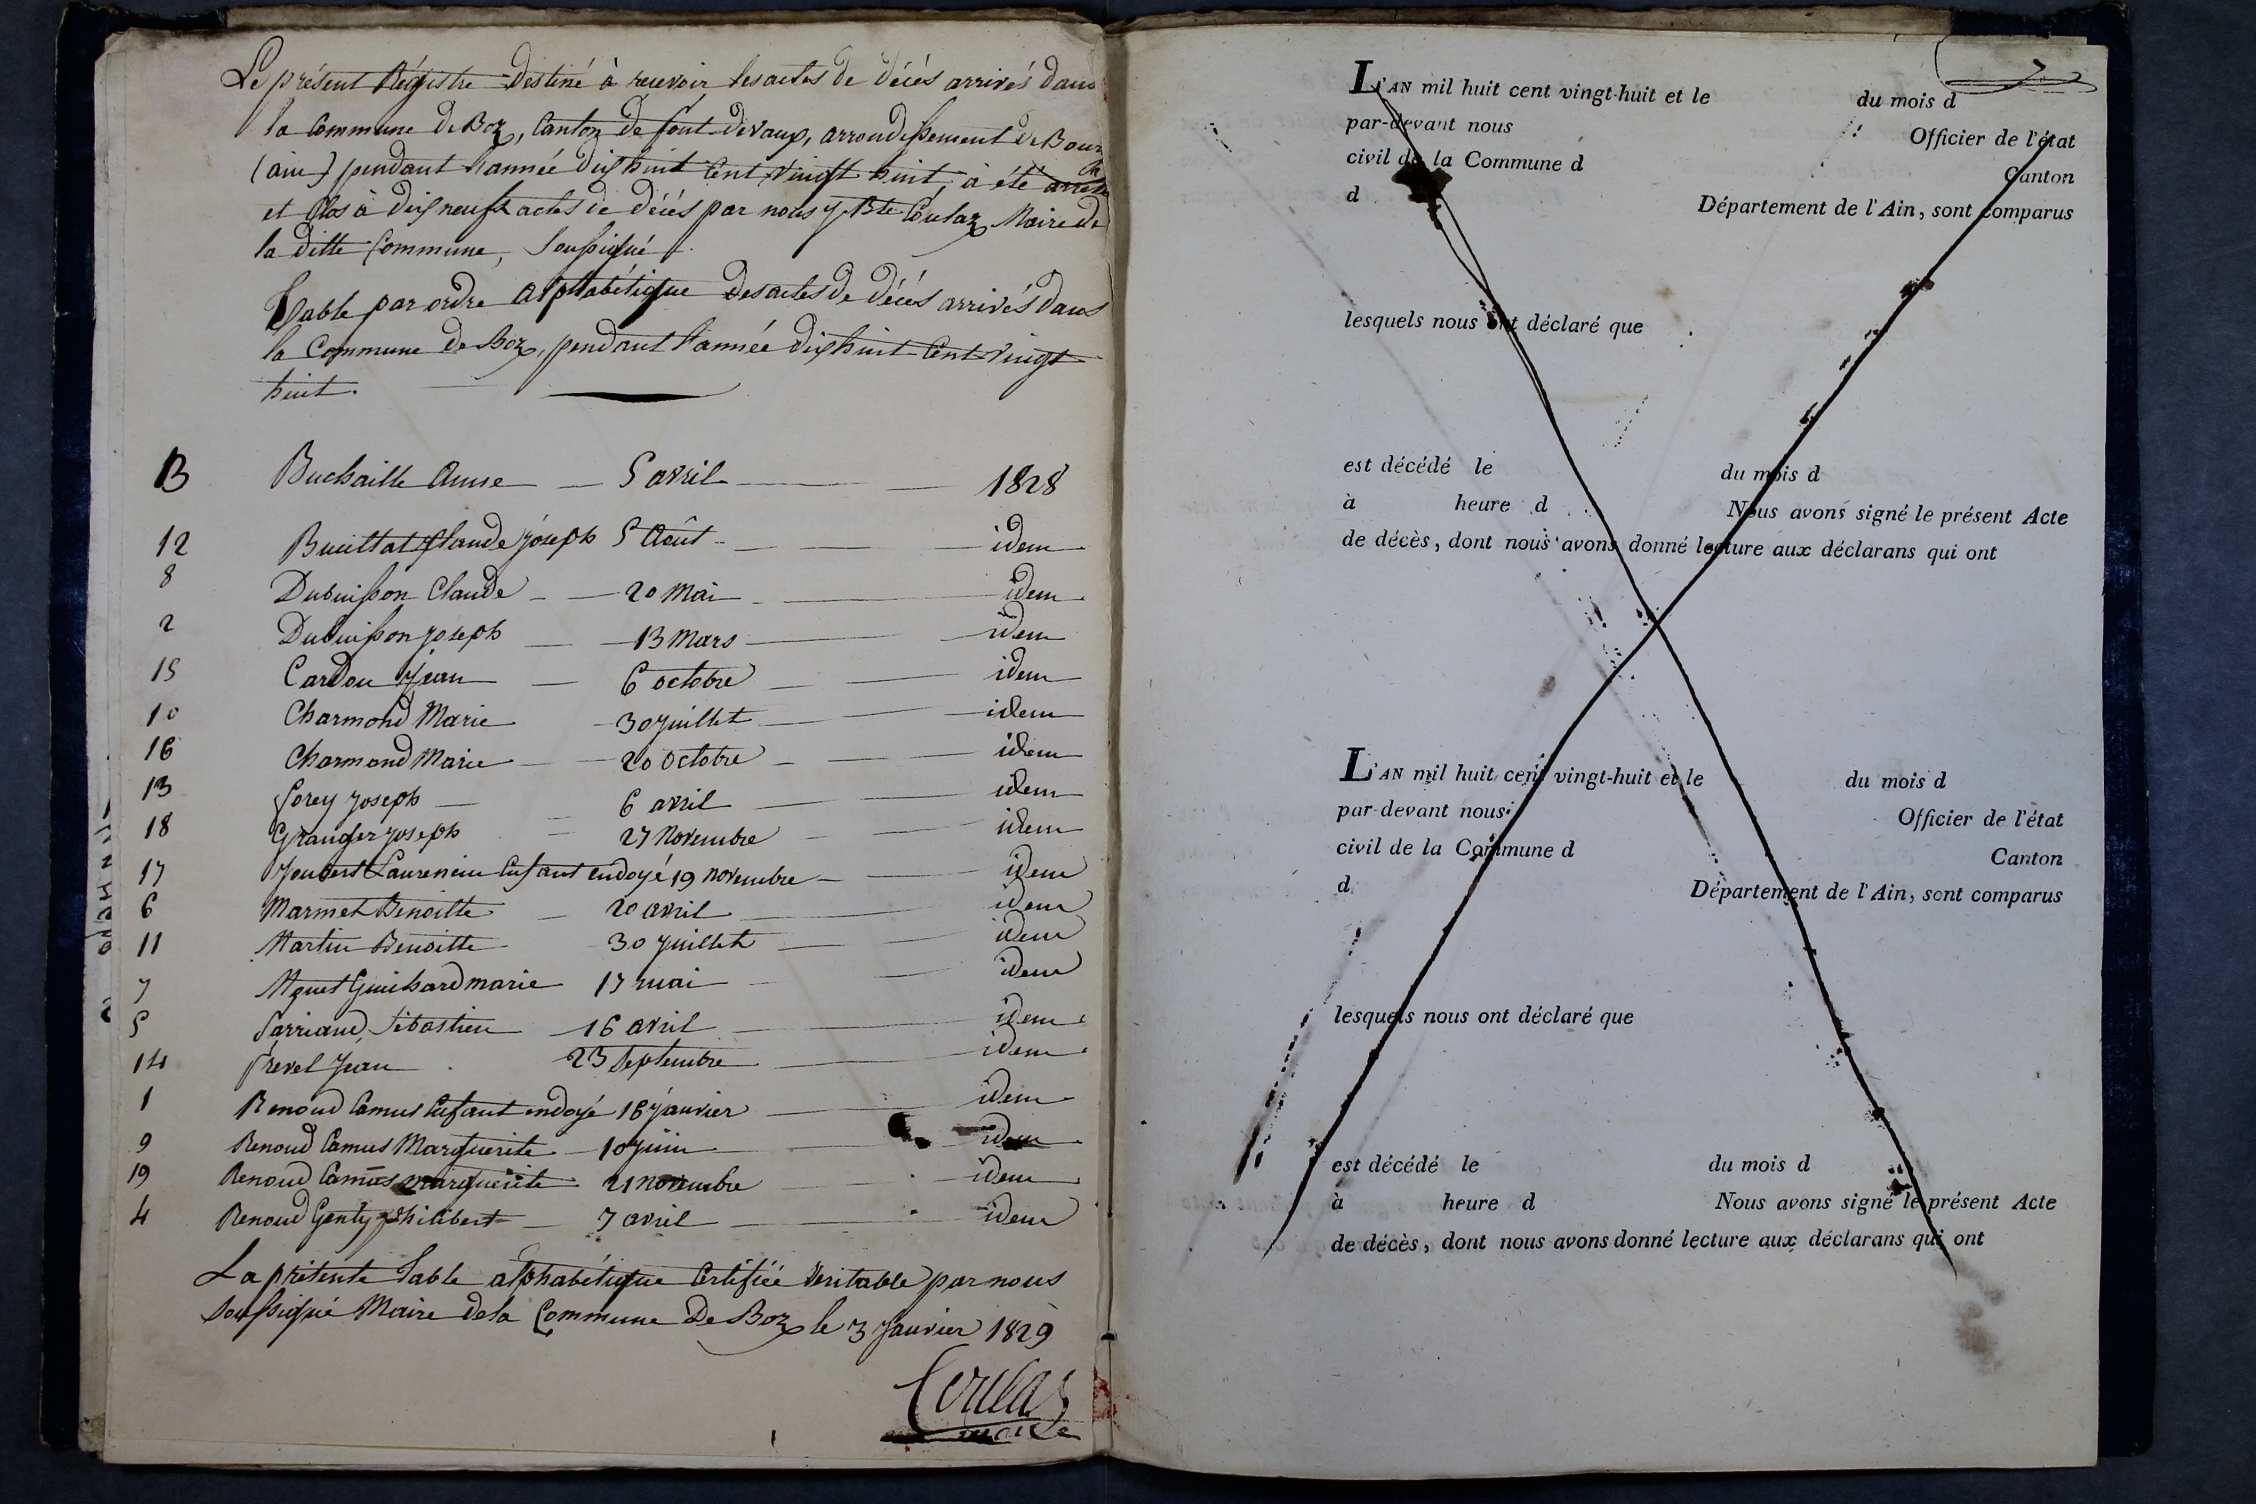 Le présent Régistre Destiné à recevoir les actes de décés arrivés dans
la Commune de Boz, Canton de Pont-devaux, arrondissement de Bourg
(ain) pendant l'année dix huit Cent Vingt huit, a été arrêté
et Clos à dix neuf actes de décés par nous J. Bte Coulaz Maire de
la ditte Commune, Soussigné
Table par ordre alphabétique des actes de décés arrivés dans
la Commune de Boz, pendant l'année dix huit Cent Vingt
huit.
B Buchaille Anne 5 avril 1828
12 Buiellat Claude joseph 5 Août idem
8 Dubuisson Claude 20 Mai idem
2 Dubuisson joseph 13 Mars idem
15 Cardon Jean 6 octobre idem
10 Charmond Marie 30 juillet idem
16 Charmond Marie 20 Octobre idem
13 Forey joseph 6 avril idem
18 Granger joseph 27 Novembre idem
17 Joubert Laurencin Enfant endoyé 19 novembre idem
6 Marmet Benoitte 20 avril idem
11 Martin Benoitte 30 juillet idem
7 Guichard marie 17 mai idem
5 Parriaud Sébastien 16 avril idem
14 Prevel Jean 23 Septembre idem
1 Renoud Camus Enfant endoyé 16 janvier idem
9 Renoud Camus Marguerite 10 juin idem
19 Renoud Camus marguerite 21 novembre idem
4 Renoud Genty philibert 7 avril idem
La présente Table alphabétique Certifiée Veritable par nous
soussigné Maire de la Commune De Boz le 3 Janvier 1829
Coulaz
maire
7
L'AN mil huit cent vingt-huit et le du mois d
par-devant nous Officier de l'état
civil de la Commune d Canton
d Département de l'Ain, sont comparus
lesquels nous ont déclaré que
est décédé le du mois d
à heure d Nous avons signé le présent Acte
de décès, dont nous avons donné lecture aux déclarans qui ont
L'AN mil huit cent vingt-huit et le du mois d
par-devant nous Officier de l'état
civil de la Commune d Canton
d Département de l'Ain, sont comparus
lesquels nous ont déclaré que
est décédé le du mois d
à heure d Nous avons signé le présent Acte
de décès, dont nous avons donné lecture aux déclarans qui ont